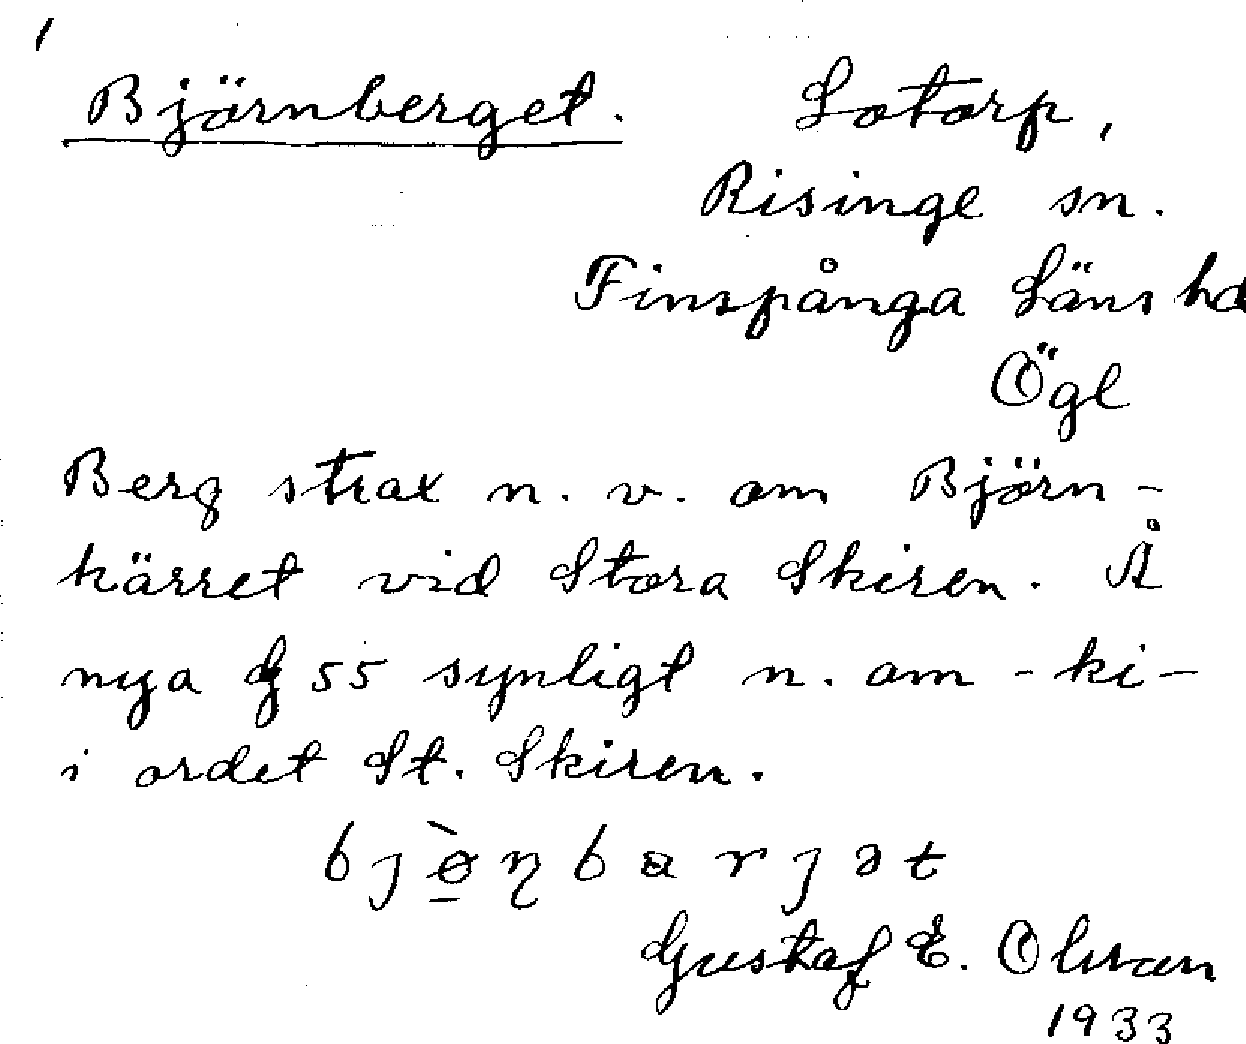 Björnberget. Lotorp,
Risinge sn.
Finspånga Läns hd
Ögl
Berg strax n. v. om Björn-
kärret vid Stora Skiren. Å
nya G 55 synligt n. om -ki-
i ordet St. Skiren.
Gustaf E. Olsson
1933